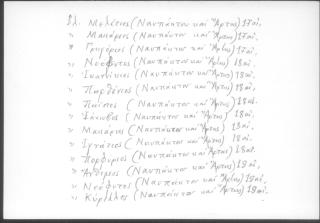 βλ. Μελέτιος (Ναυπάκτου καὶ Ἄρτης) 17 αἰ,
" Μακάριος (Ναυπάκτου καὶ Ἄρτης) 17 αἰ,
" Γρηγόριος (Ναυπάκτου καὶ Ἄρτης) 17 αἰ,
" Νεόφυτος (Ναυπάκτου καὶ Ἄρτης) 18 αἰ.
" Ἰωαννίκιος (Ναυπάκτου καὶ Ἄρτης) 18 αἰ,
" Παρθένιος (Ναυπάκτου καὶ Ἄρτης) 18 αἰ,
" Παΐσιος (Ναυπάκτου καὶ Ἄρτης) 18 αἰ.
" (Ναυπάκτου καὶ Ἄρτης) 18 αἰ
" Μακάριος (Ναυπάκτου καὶ Ἄρτης) 18 αἰ.
" Ἰγνάτιος (Ναυπάκτου καὶ Ἄρτης) 18 αἰ.
" Πορφύριος (Ναυπάκτου καὶ Ἄρτης) 18 αἰ.
" Ἄνθιμος (Ναυπάκτου καὶ Ἄρτης) 19 αἰ,
" Νεόφυτος (Ναυπάκτου καὶ Ἄρτης) 19 αἰ,
" Κύριλλος (Ναυπάκτου καὶ Ἄρτης) 19 αἰ.